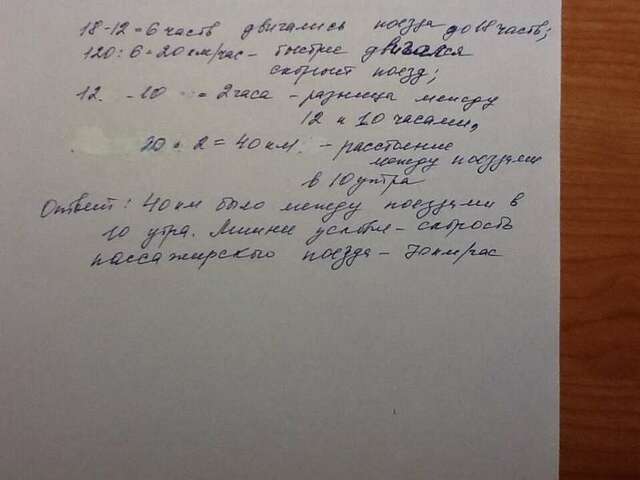 18-12=6 часов двигались поезда до 18 часов;
120:6=20 км/час - быстрее двигался
скорый поезд;
12 - 10 = 2 часа - разница между
12 и 10 часами,
20 · 2 = 40 км. - расстояние
между поездами
в 10 утра
Ответ: 40 км было между поездами в
10 утра. Лишнее условие - скорость
пассажирского поезда - 70 км/час